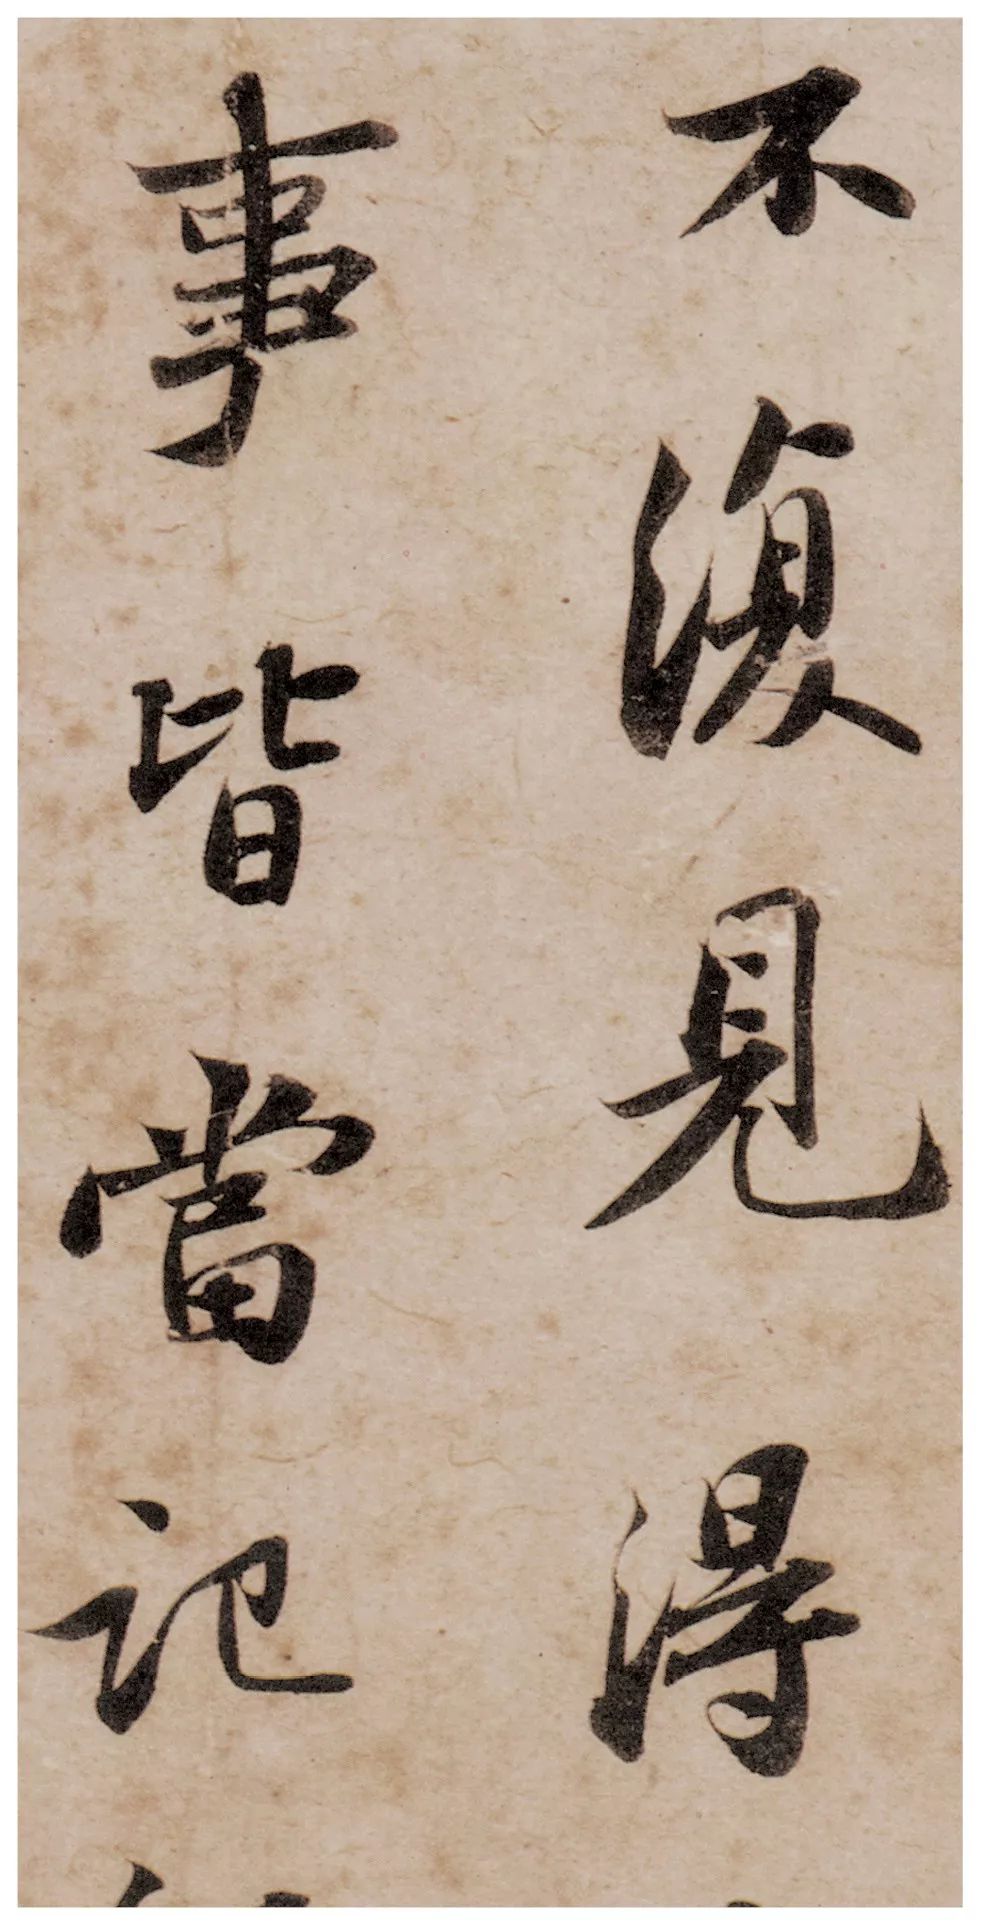 不復見得
事皆當記